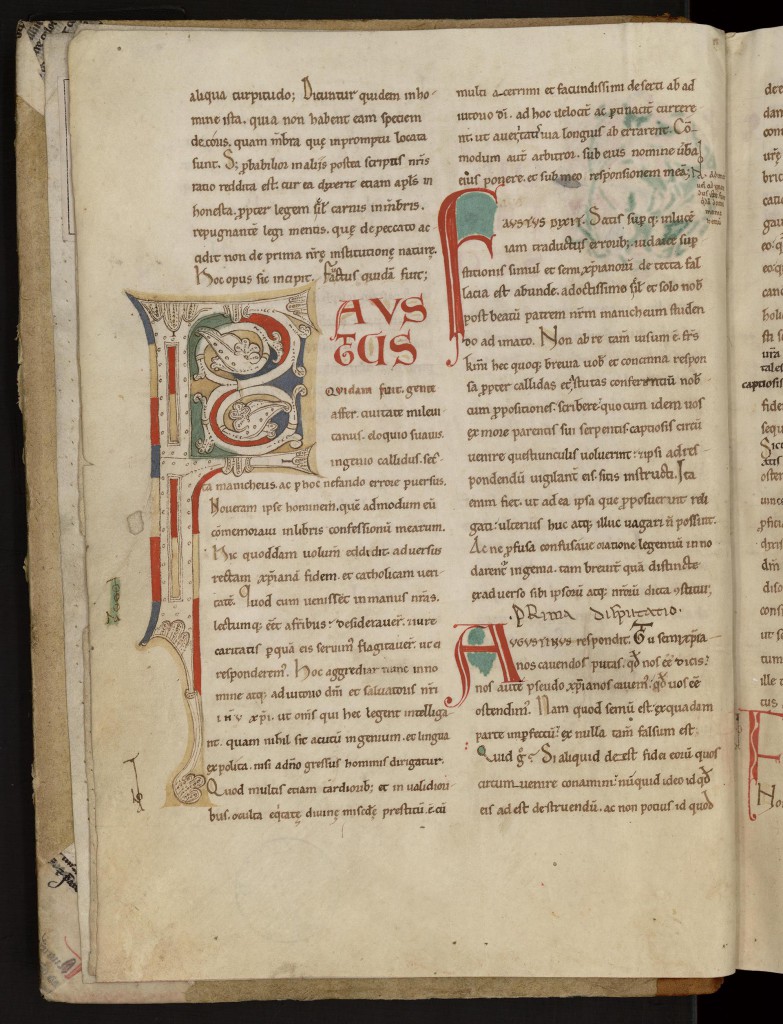 aliqua turpitudo; Dicuntur quidem in ho-
mine ista, quia non habent eam speciem
decoris, quam mbra quę in promptu locata
sunt. S; pbabilior in aliis postea scriptis nris
ratio reddita est, cur ea dixerit etiam apls in
honesta, ppter legem sil carnis in mbris,
repugnante legi mentis, quę de peccato ac
cidit non de prima nrę institutione naturę.
Hoc opus sic incipit. Faustus quidā fuit;
FAVS
TUS
Quidam fuit. gente
affer. ciuitate mileui
tanus. eloquio suauis.
ingenio callidus. sec
ta manicheus. ac p hoc nefando errore puersus.
Noueram ipse hominem. quē admodum eū
cōmemoraui in libris confessionū mearum.
Hic quoddam volum edidit. aduersus
rectam xpianā fidem. et catholicam ueri
tatē. Quod cum uenisset in manus nras.
lectumq; eēt a fribus. desiderauer. iure
caritatis p quā eis seruim flagitauer. ut ei
responderem. Hoc aggrediar nunc in no
mine atq; adiutorio dni et saluatoris nri
ihu xpi. ut oms qui hec legent intelliga
nt. quam nihil sit acutū ingenium. et lingua
expolita. nisi a dno gressus hominis dirigatur.
Quod multis etiam tardiorib; et in validiori
bus. oculta eq̄tate diuinę miscdę prestitū. ē. cū
multi acerrimi et facundissimi deserti ab ad
iutorio di. ad hoc uelocit ac ptinacit currere
nt. ut a ueritatis uia longius aberrarent. Cō-
modum aut arbitror. sub eius nomine uba
eius ponere. et sub meo responsionem meā;
FAUSTUS DIXIT. Satis supq; in luce
iam traductis errorib; iudaice sup
stitionis simul et semi xpianorū detecta fal
lacia est abunde. a doctissimo sil et solo nob
post beatū patrem nrm manicheum studen
do adimato. Non ab re tam uisum ē. frs
kmi hec quoq; breuia uob et concinna respon
sa. ppter callidas et astutas conferentiū nob
cum ppositiones. scribere. quo cum idem uos
ex more parentis sui serpentis captiosis circū
uenire questiunculis uoluerint. et ipsi ad res-
pondendū uigilant eis. sitis instructi. Ita
enim fiet. ut ad ea ipsa que pposuerint reli
gati. ulterius huc atq; illuc uagari ñ possint.
Ac ne pfusa confusaue oratione legentiū inno
darent ingenia. tam breuit quā distincte
ex aduerso sibi ipsorū atq; nrum dicta ostitui;
.PRima disputatio.
AUGUSTINUS respondit. Tu semi xpia-
nos cauendos putas. qd nos eē dicis;
nos autē pseudo xpianos cauem. qd uos eē
ostendim. Nam quod semū est. ex quadam
parte impfectū. ex nulla tam falsum est.
Quid g. Si aliquid deest fidei eorū quos
circum uenire conamini. nūquid ideo id qd
eis adest destruendū. ac non potius id quod
captiosis